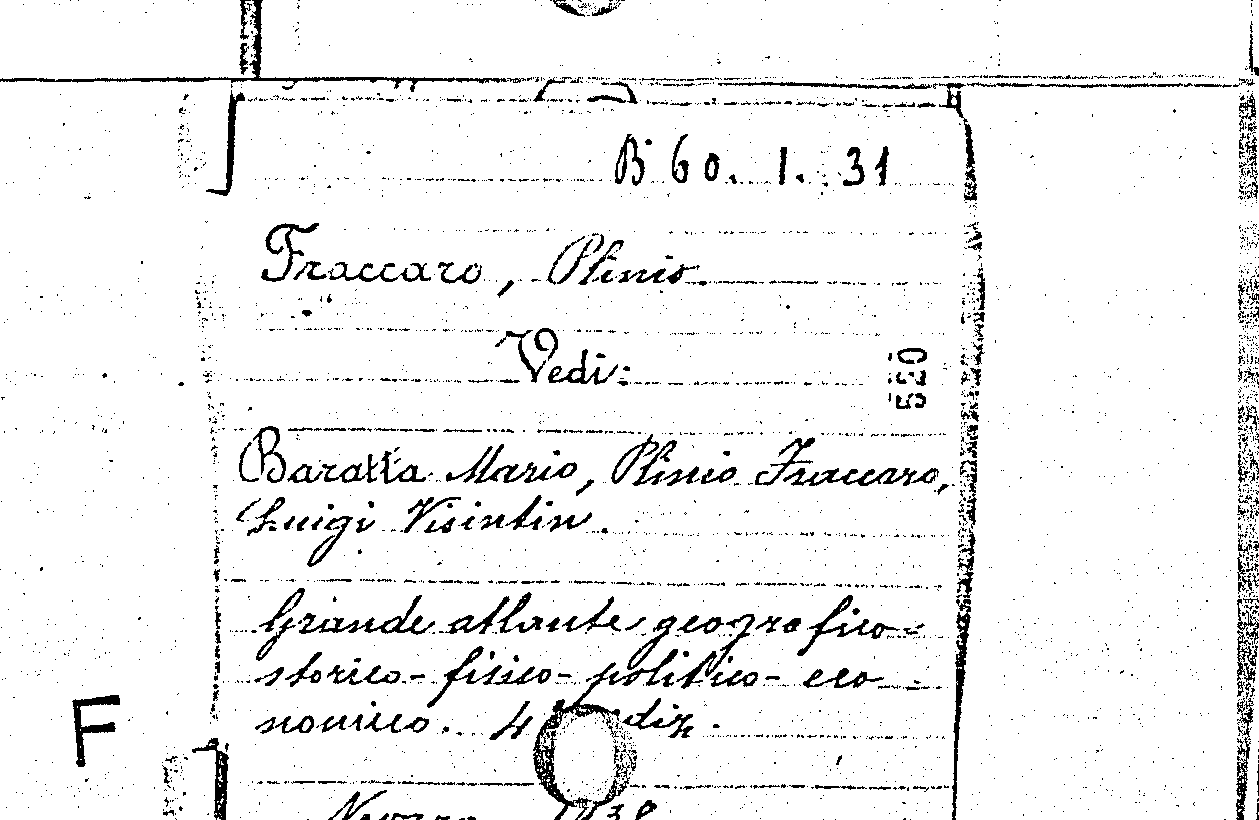 B 60. 1. 31
Fraccaro, Plinio.
Vedi:
520
Baratta Mario, Plinio Fraccaro,
Luigi Visintin.
Grande atlante geografico-
storico-fisico-politico-eco
nomico. 4
F